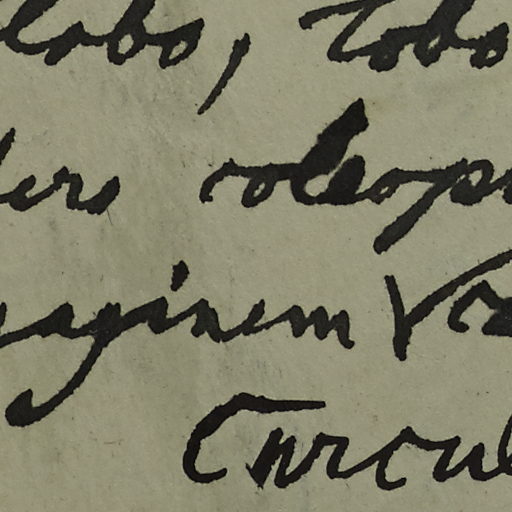 lobo, lobo
ders coleop
vaginem V ca
Curcul